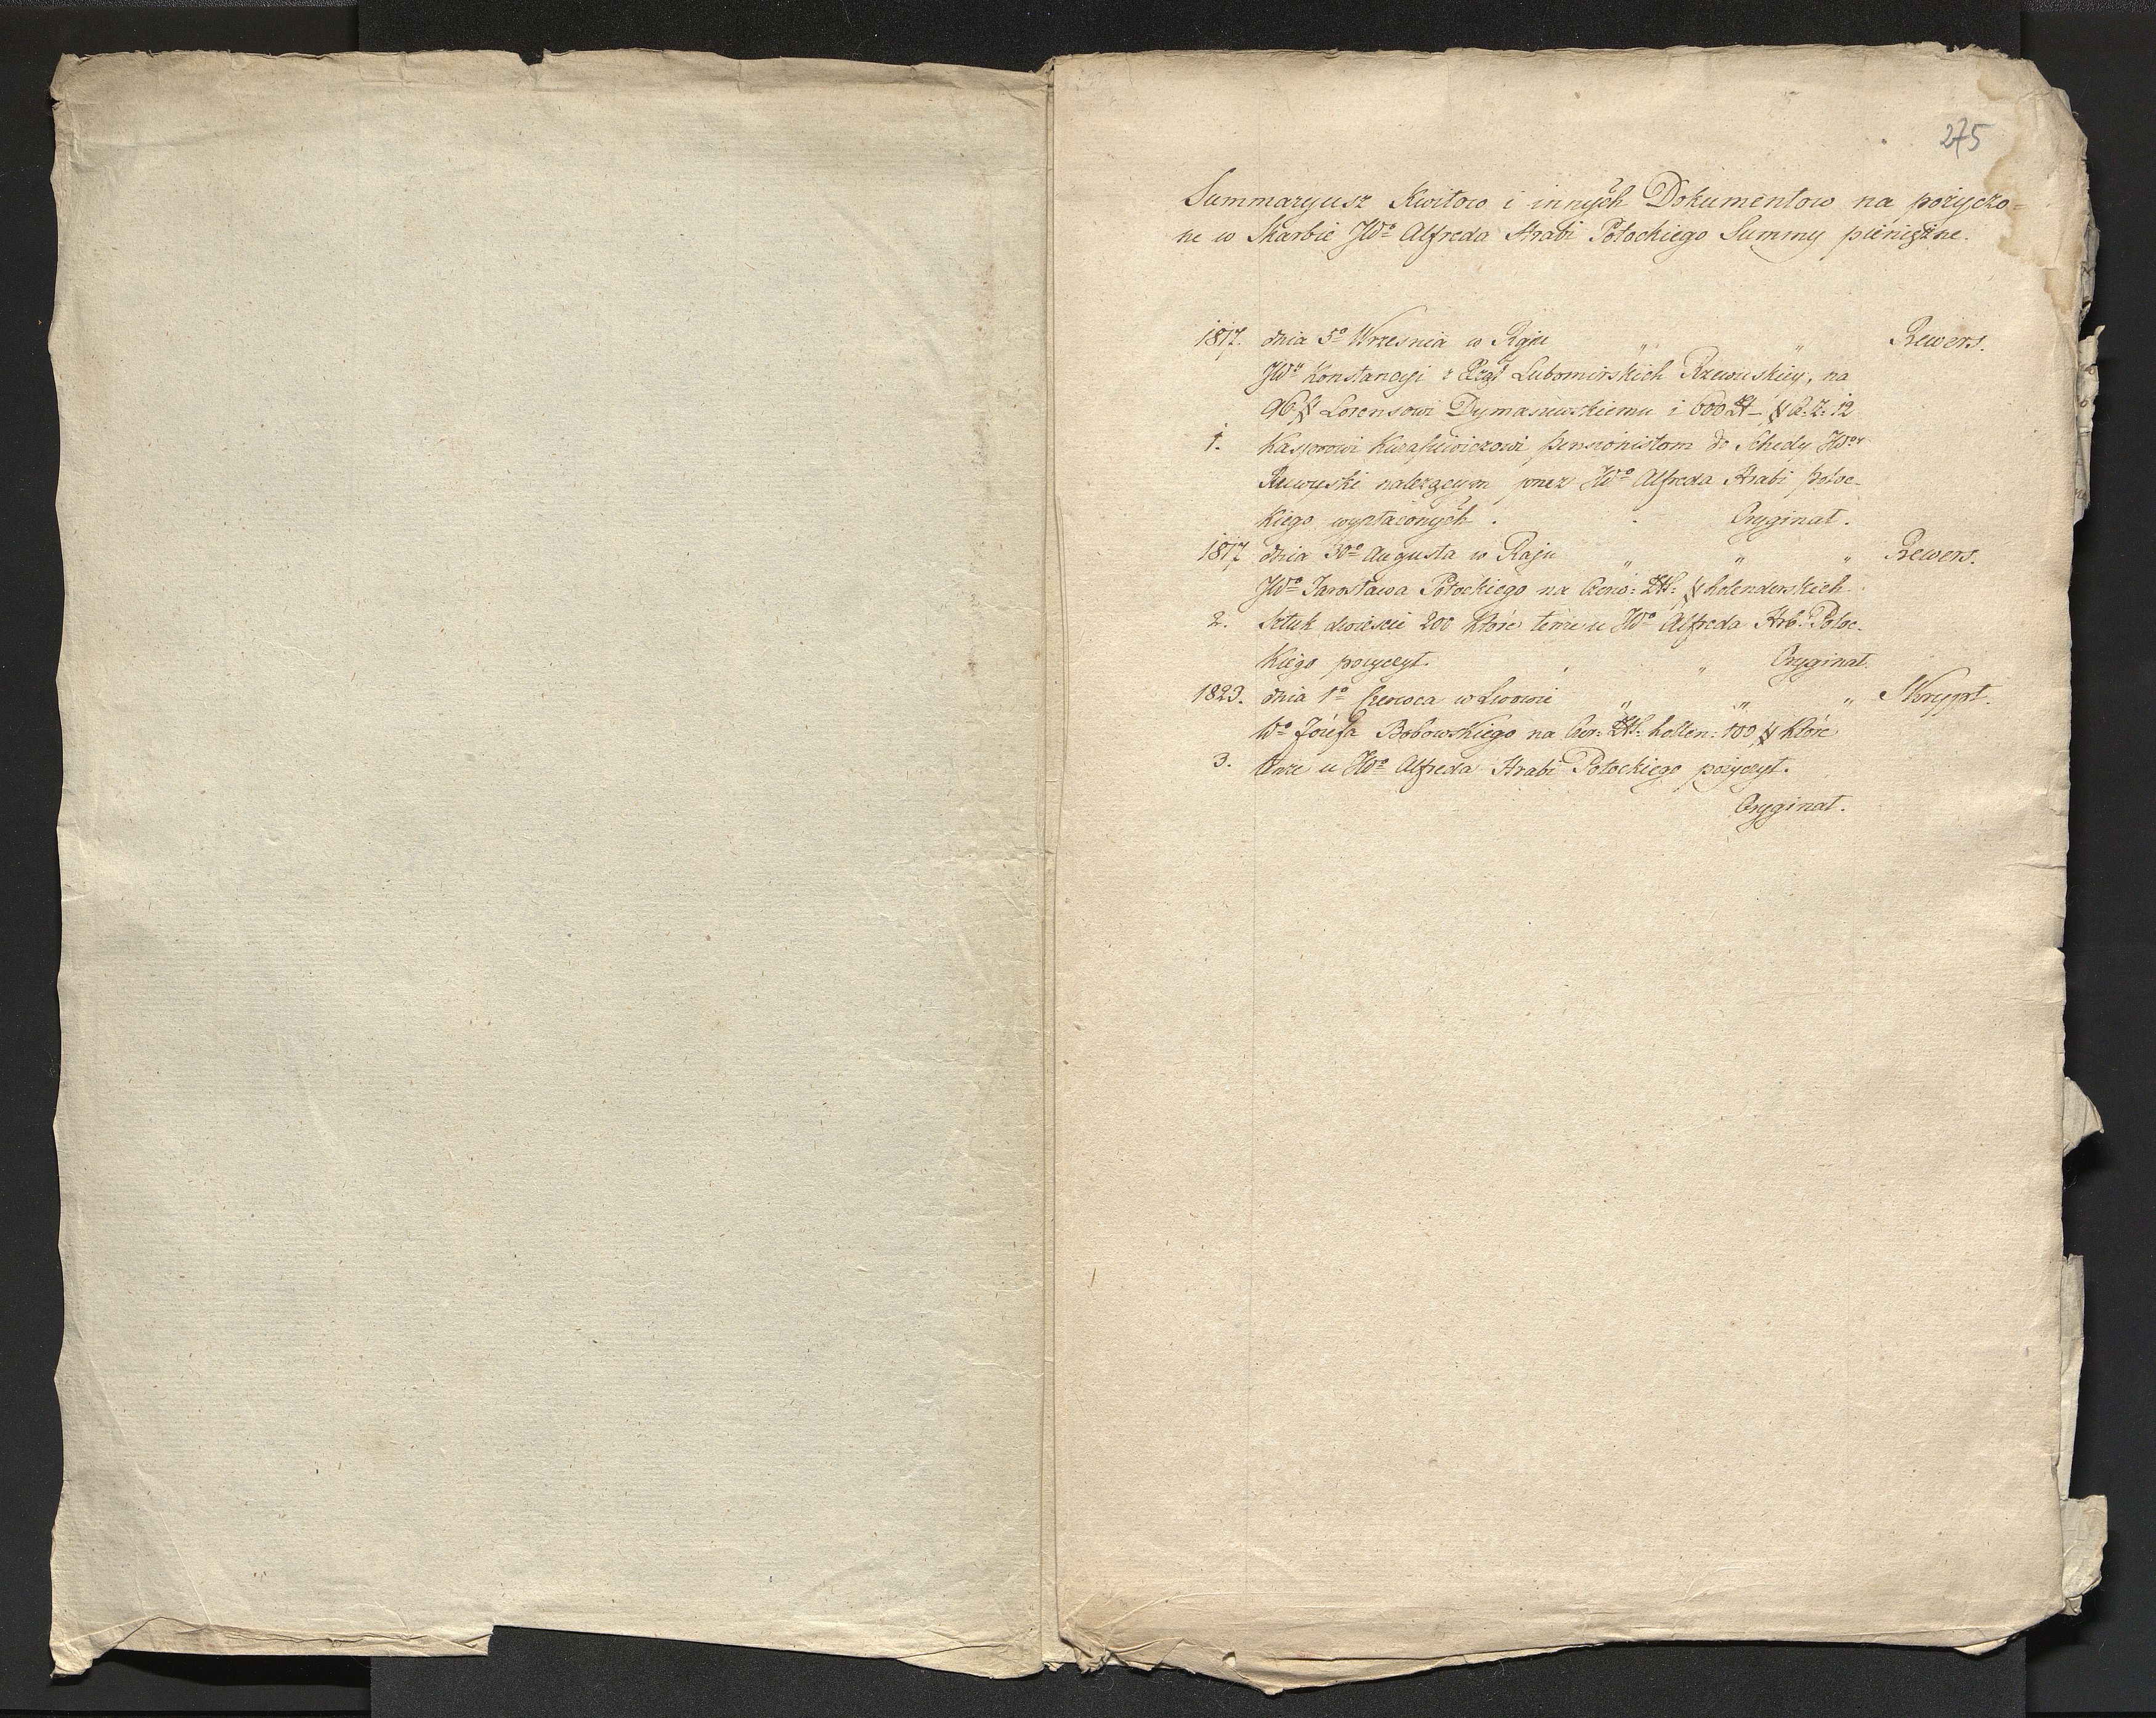 275
Summaryusz Kwitow i innych Dokumentow na pożyczo=
ne w Skarbie JWo Alfreda Hrabi Potockiego Summy pieniężne.
1817. dnia 5o Wrzesnia w Raju " " Rewers.
JWy Konstancyi z Lubomirskich Rzewuskiey, na
96 # Lorensowi Dymaszewskiemu i 600
1. Kasprowi pensionistom do Schedy JWey
Rzewuski należącym przez JWo Alfreda Hrabi Potoc-
kiego wypłaconych . . Oryginał.
1817 dnia 30o Augusta w Raju " " " Rewers.
JWo Jarosława Potockiego na Czerw: Zł: # holenderskich
2. Sztuk dwieście 200 które tenże u JWo Alfreda Hrb: Potoc-
kiego pożyczył. " " Oryginał.
1823. dnia 1o Czerwca w Lwowie " " " Skrypt.
Wo Józefa Bobowskiego na Czer: Zł: hollen: 100, # które
3. tenże u JWo Alfreda Hrabi Potockiego pożyczył.
Oryginał.